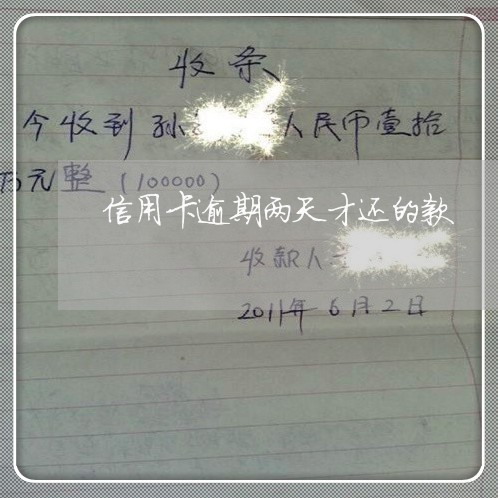 收条
今收到孙 人民币壹拾
万元整(100000)
信用卡逾期两天才还的款
收款人
2011年6月2日